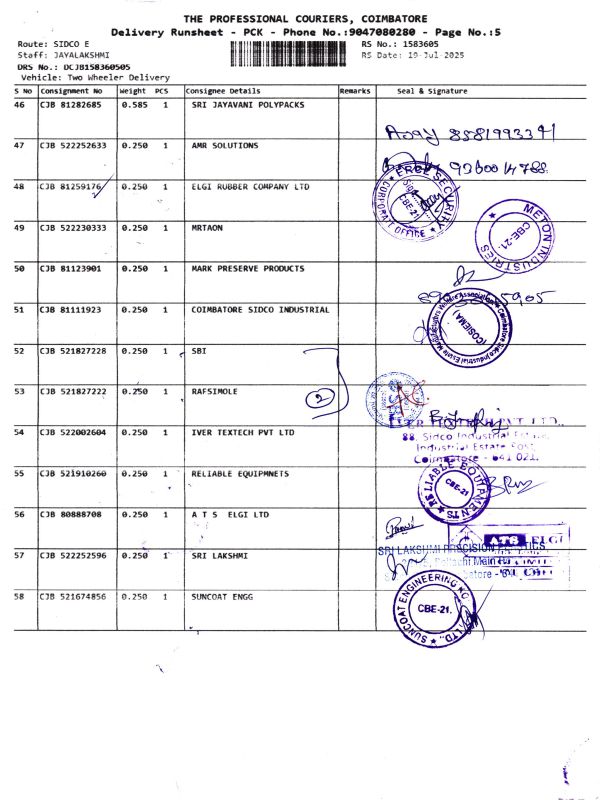 THE PROFESSIONAL COURIERS, COIMBATORE
Delivery Runsheet - PCK - Phone No.:9047080280 - Page No.:5
Route: SIDCO E RS No.: 1583605
Staff: JAYALAKSHMI RS Date: 19-Jul-2025
DRS No.: DCJB158360505
Vehicle: Two Wheeler Delivery
S No Consignment No Weight PCS Consignee Details Remarks Seal & Signature
46 CJB 81282685 0.585 1 SRI JAYAVANI POLYPACKS
8581993341
47 CJB 522252633 0.250 1 AMR SOLUTIONS
48 CJB 81259176 0.250 1 ELGI RUBBER COMPANY LTD
SECURITY
CORPORATE OFFICE
CBE-21
49 CJB 522230333 0.250 1 MRTAON
METON INDUSTRIES
CBE-21.
50 CJB 81123901 0.250 1 MARK PRESERVE PRODUCTS
51 CJB 81111923 0.250 1 COIMBATORE SIDCO INDUSTRIAL
Coimbatore Sidco Industrial Estate Manufacturers Welfare Association
(COSIEMA)
52 CJB 521827228 0.250 1 SBI
2
53 CJB 521827222 0.250 1 RAFSIMOLE
54 CJB 522002604 0.250 1 IVER TEXTECH PVT LTD
PVT LTD.,
88, Sidco Industrial Estate,
Industrial Estate Post,
Coimbatore - 641 021.
55 CJB 521910260 0.250 1 RELIABLE EQUIPMNETS
RELIABLE EQUIPMENTS
CBE-21
56 CJB 80888708 0.250 1 A T S ELGI LTD
ATS ELGI
57 CJB 522252596 0.250 1 SRI LAKSHMI
SRI LAKSHMI PRECISION
Pollachi Main Rd
58 CJB 521674856 0.250 1 SUNCOAT ENGG
SUNCOAT ENGINEERING
LTD.,
CBE-21.